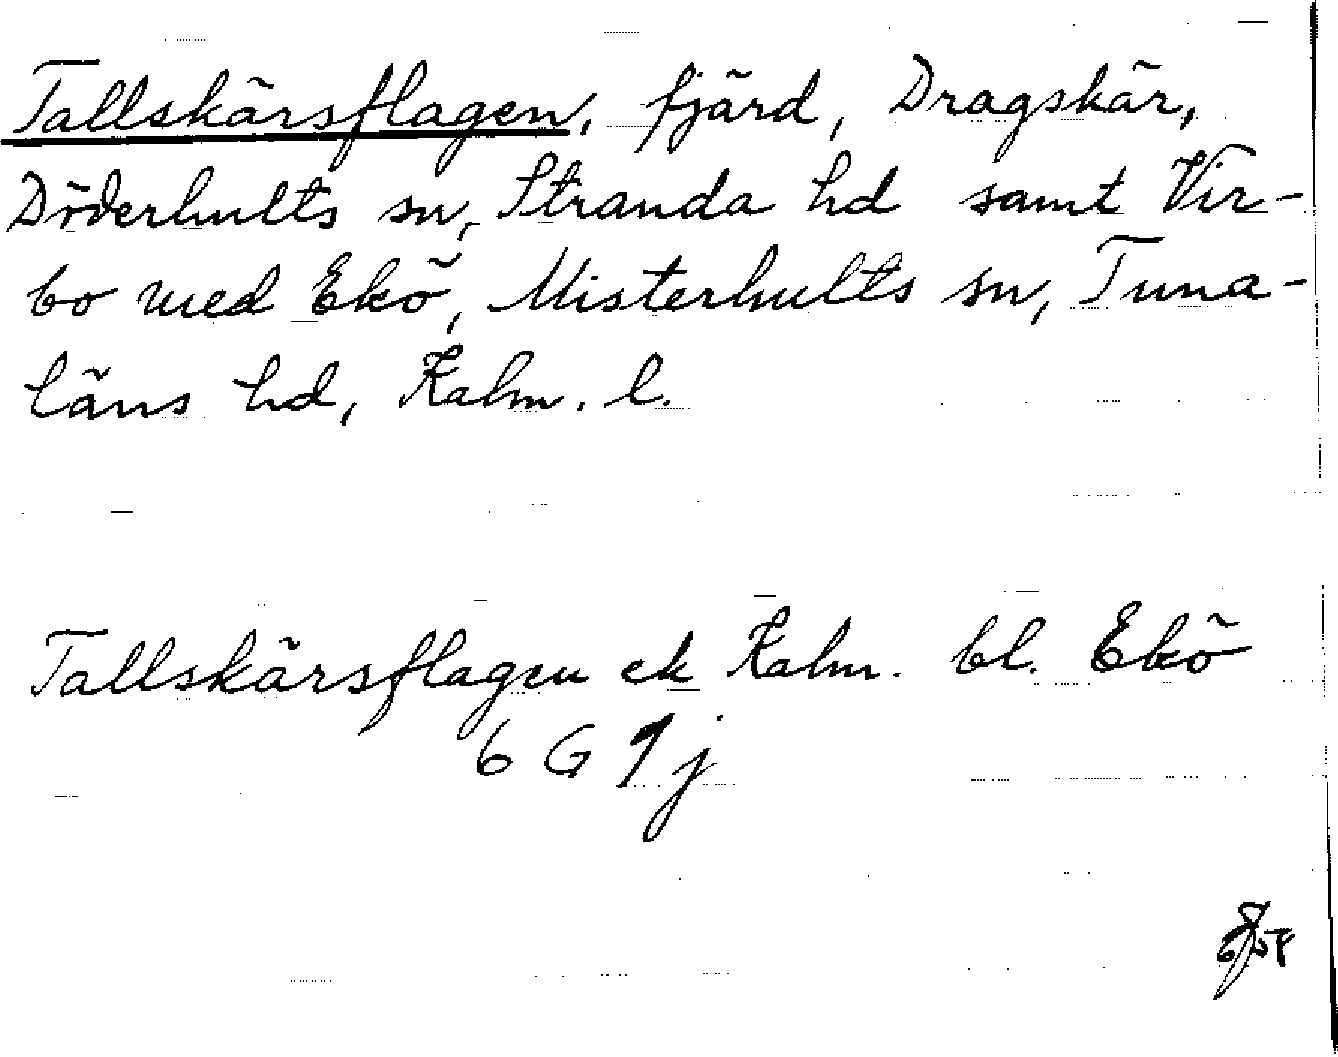 Tallskärsflagen, fjärd, Dragskär,
Döderhults sn, Stranda hd samt Vir-
bo med Ekö, Misterhults sn, Tuna-
läns hd, Kalm. l.
Tallskärsflagen ek Kalm. bl. Ekö
6 G 9 j